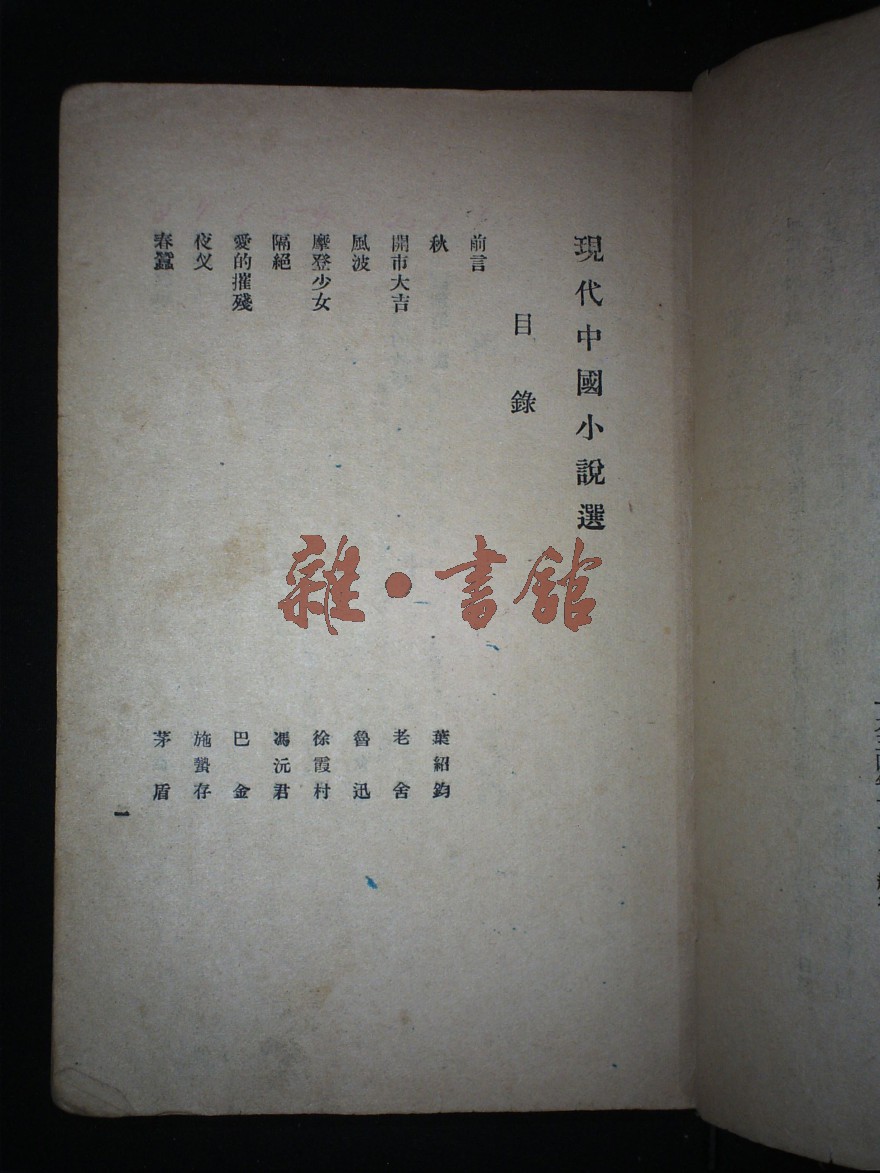 現代中國小說選
目錄
前言
秋 葉紹鈞
開市大吉 老舍
風波 魯迅
摩登少女 徐霞村
隔絕 馮沅君
愛的摧殘 巴金
夜叉 施蟄存
春蠶 茅盾
一
雜·書館